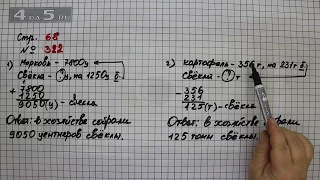 4 да 5.ru
Стр. 68
№ 382
1) Морковь - 7800ц
Свёкла - ?ц, на 1250ц Б.
+ 7800
1250
9050(ц) - свёкла
Ответ: в хозяйстве собрали
9050 центнеров свёклы.
2) картофель - 356 т, на 231т Б.
Свёкла - ? т
- 356
231
125(т) - свёкла
Ответ: в хозяйстве собрали
125 тонн свёклы.